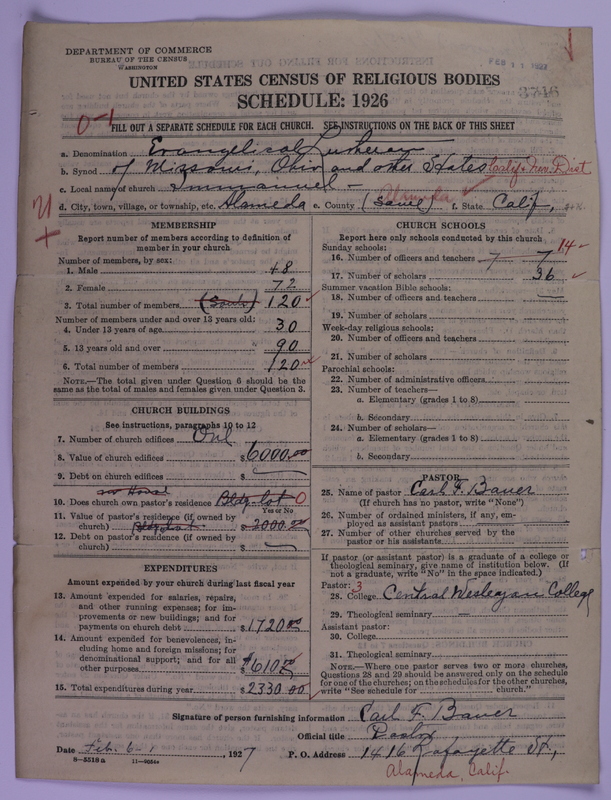 DEPARTMENT OF COMMERCE
BUREAU OF THE CENSUS
WASHINGTON
FEB 11 1927
3746
UNITED STATES CENSUS OF RELIGIOUS BODIES
SCHEDULE: 1926
0-1
FILL OUT A SEPARATE SCHEDULE FOR EACH CHURCH. SEE INSTRUCTIONS ON THE BACK OF THIS SHEET
a. Denomination Evangelical Lutheran
b. Synod of Missouri, Ohio and other States Calif & Nev. Dist
c. Local name of church Immanuel -
d. City, town, village, or township, etc. Alameda e. County (Same) Alameda f. State Calif,
MEMBERSHIP
Report number of members according to definition of
member in your church.
Number of members, by sex:
1. Male 48
2. Female 72
3. Total number of members (Souls) 120
Number of members under and over 13 years old:
4. Under 13 years of age 30
5. 13 years old and over 90
6. Total number of members 120
NOTE.—The total given under Question 6 should be the
same as the total of males and females given under Question 3.
CHURCH BUILDINGS
See instructions, paragraphs 10 to 12
7. Number of church edifices One
8. Value of church edifices $6000.00
9. Debt on church edifices $
10. Does church own pastor's residence Bldg. lot 0
Yes or No
11. Value of pastor's residence (if owned by
church) Bldg. lot $2000.00
12. Debt on pastor's residence (if owned by
church) $
EXPENDITURES
Amount expended by your church during last fiscal year
13. Amount expended for salaries, repairs,
and other running expenses; for im-
provements or new buildings; and for
payments on church debt $1720.00
14. Amount expended for benevolences, in-
cluding home and foreign missions; for
denominational support; and for all
other purposes $610.00
15. Total expenditures during year $2330.00
CHURCH SCHOOLS
Report here only schools conducted by this church
Sunday schools:
16. Number of officers and teachers 7 7 14
17. Number of scholars 36
Summer vacation Bible schools:
18. Number of officers and teachers
19. Number of scholars
Week-day religious schools:
20. Number of officers and teachers
21. Number of scholars
Parochial schools:
22. Number of administrative officers
23. Number of teachers—
a. Elementary (grades 1 to 8)
b. Secondary
24. Number of scholars—
a. Elementary (grades 1 to 8)
b. Secondary
PASTOR
25. Name of pastor Carl F. Bauer
(If church has no pastor, write "None")
26. Number of ordained ministers, if any, em-
ployed as assistant pastors
27. Number of other churches served by the
pastor or his assistants
If pastor (or assistant pastor) is a graduate of a college or
theological seminary, give name of institution below. (If
not a graduate, write "No" in the space indicated.)
Pastor: 3
28. College Central Wesleyan College
29. Theological seminary —
Assistant pastor:
30. College
31. Theological seminary
NOTE.—Where one pastor serves two or more churches,
Questions 28 and 29 should be answered only on the schedule
for one of the churches; on the schedules for the other churches,
write "See schedule for church."
Signature of person furnishing information Carl F. Bauer
Official title Pastor
Date Feb. 6-, 1927 P. O. Address 1416 Lafayette St.,
8-5518a 11-9064a
Alameda, Calif.